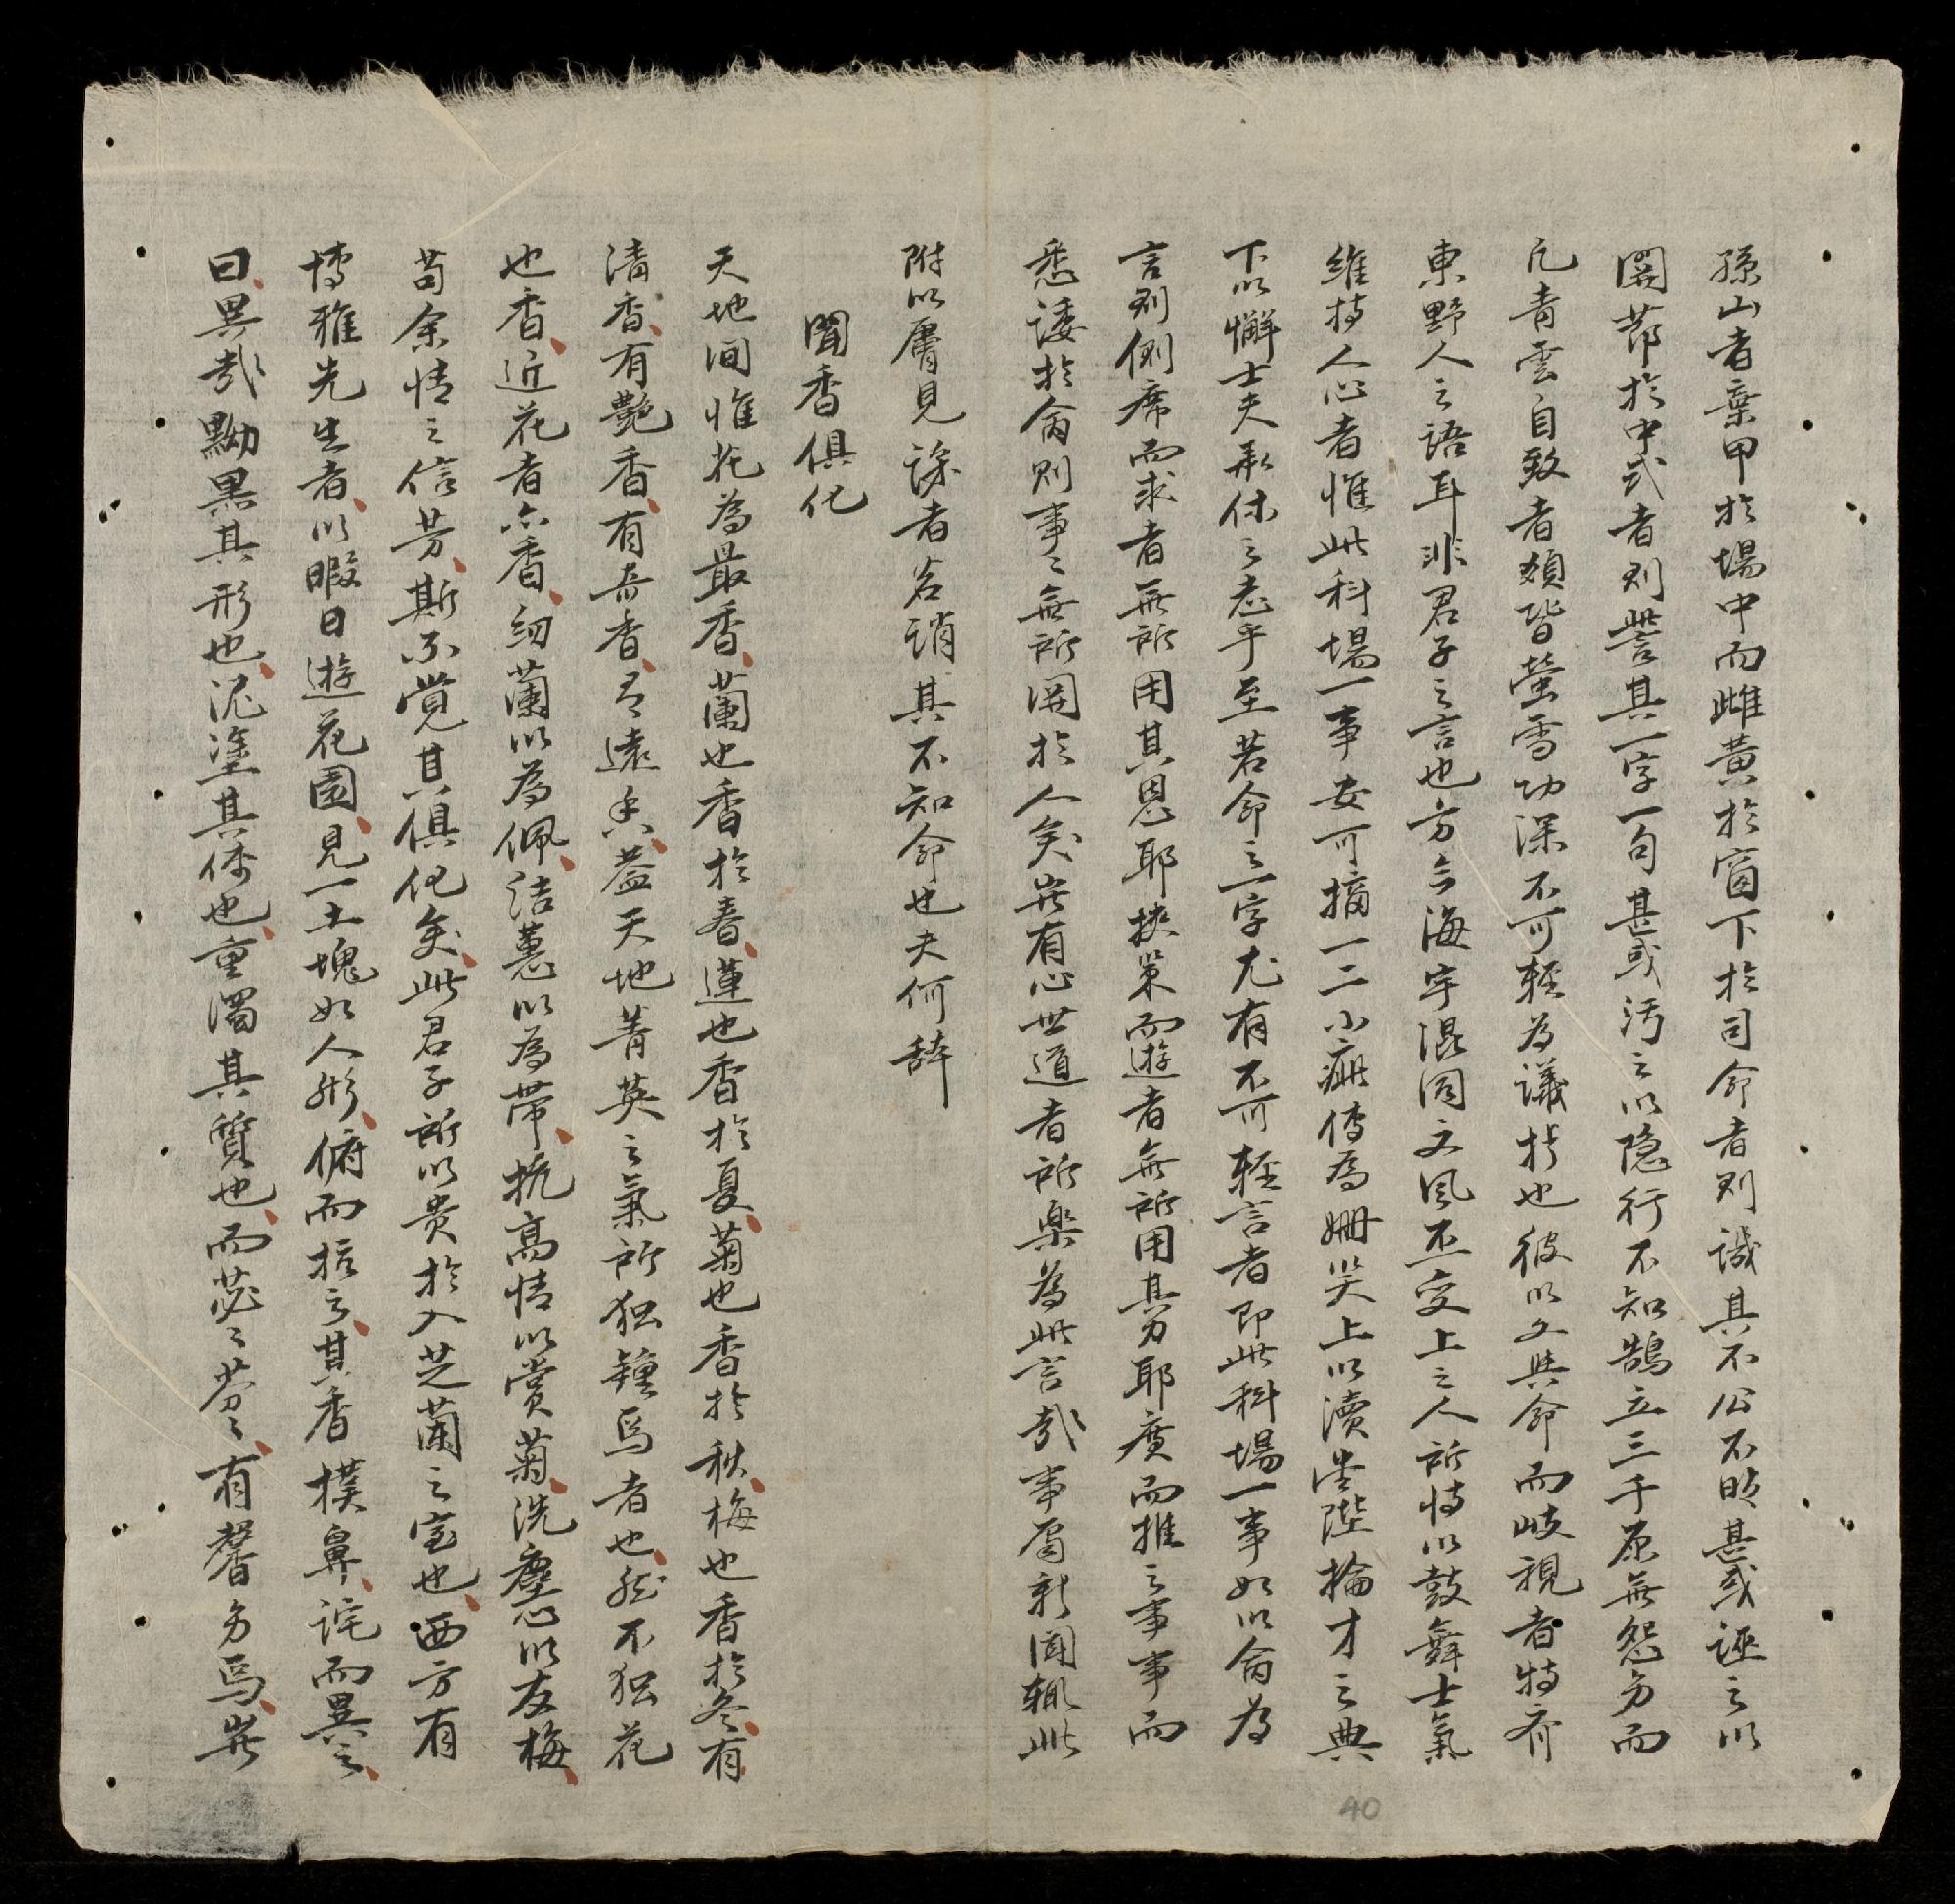 孫山者棄甲於場中而雌黃於窗下於司命者則譏其不公不明甚或誣之以
関節於中式者則訾其一字一句甚或汚之以隐行不知鵠立三千原無怨另而
凡青雲自致者類皆螢雪功深不可輕為議押也彼以文與命而歧視者特齐
東野人之語耳非君子之言也方今海宇混同文風丕变上之人所恃以鼓舞士氣
維持人心者惟此科場一事安可摘一二小疵傳為姍哭上以瀆堂陛掄才之典
下以懈士夫承休之志乎至若命之一字尤有不可輕言者即此科場一事如以命為
言則側席而求者無所用其恩耶挾策而遊者無所用其劳耶廣而推之事事而
悉諉於命則事〻無所関於人矣豈有心世道者所樂為此言哉事属新聞輒此
附以膚見謗者若誚其不知命也夫何辞
聞香俱化
天地间惟花為最香蘭也香於春蓮也香於夏菊也香於秋梅也香於冬有
清香有艶香有奇香有遠香盖天地菁英之氣所独鍾焉者也然不独花
也香近花者亦香紉蘭以為佩結蕙以為带抗高情以赏菊洗塵心以友梅
苟余情之信芳斯不覚其俱化矣此君子所以贵於入芝蘭之室也西方有
博雅先生者以暇日遊花園見一土塊如人形俯而拾之其香撲鼻詫而異之
曰異哉黝黒其形也泥塗其体也重濁其質也而苾〻芬〻有馨另焉豈